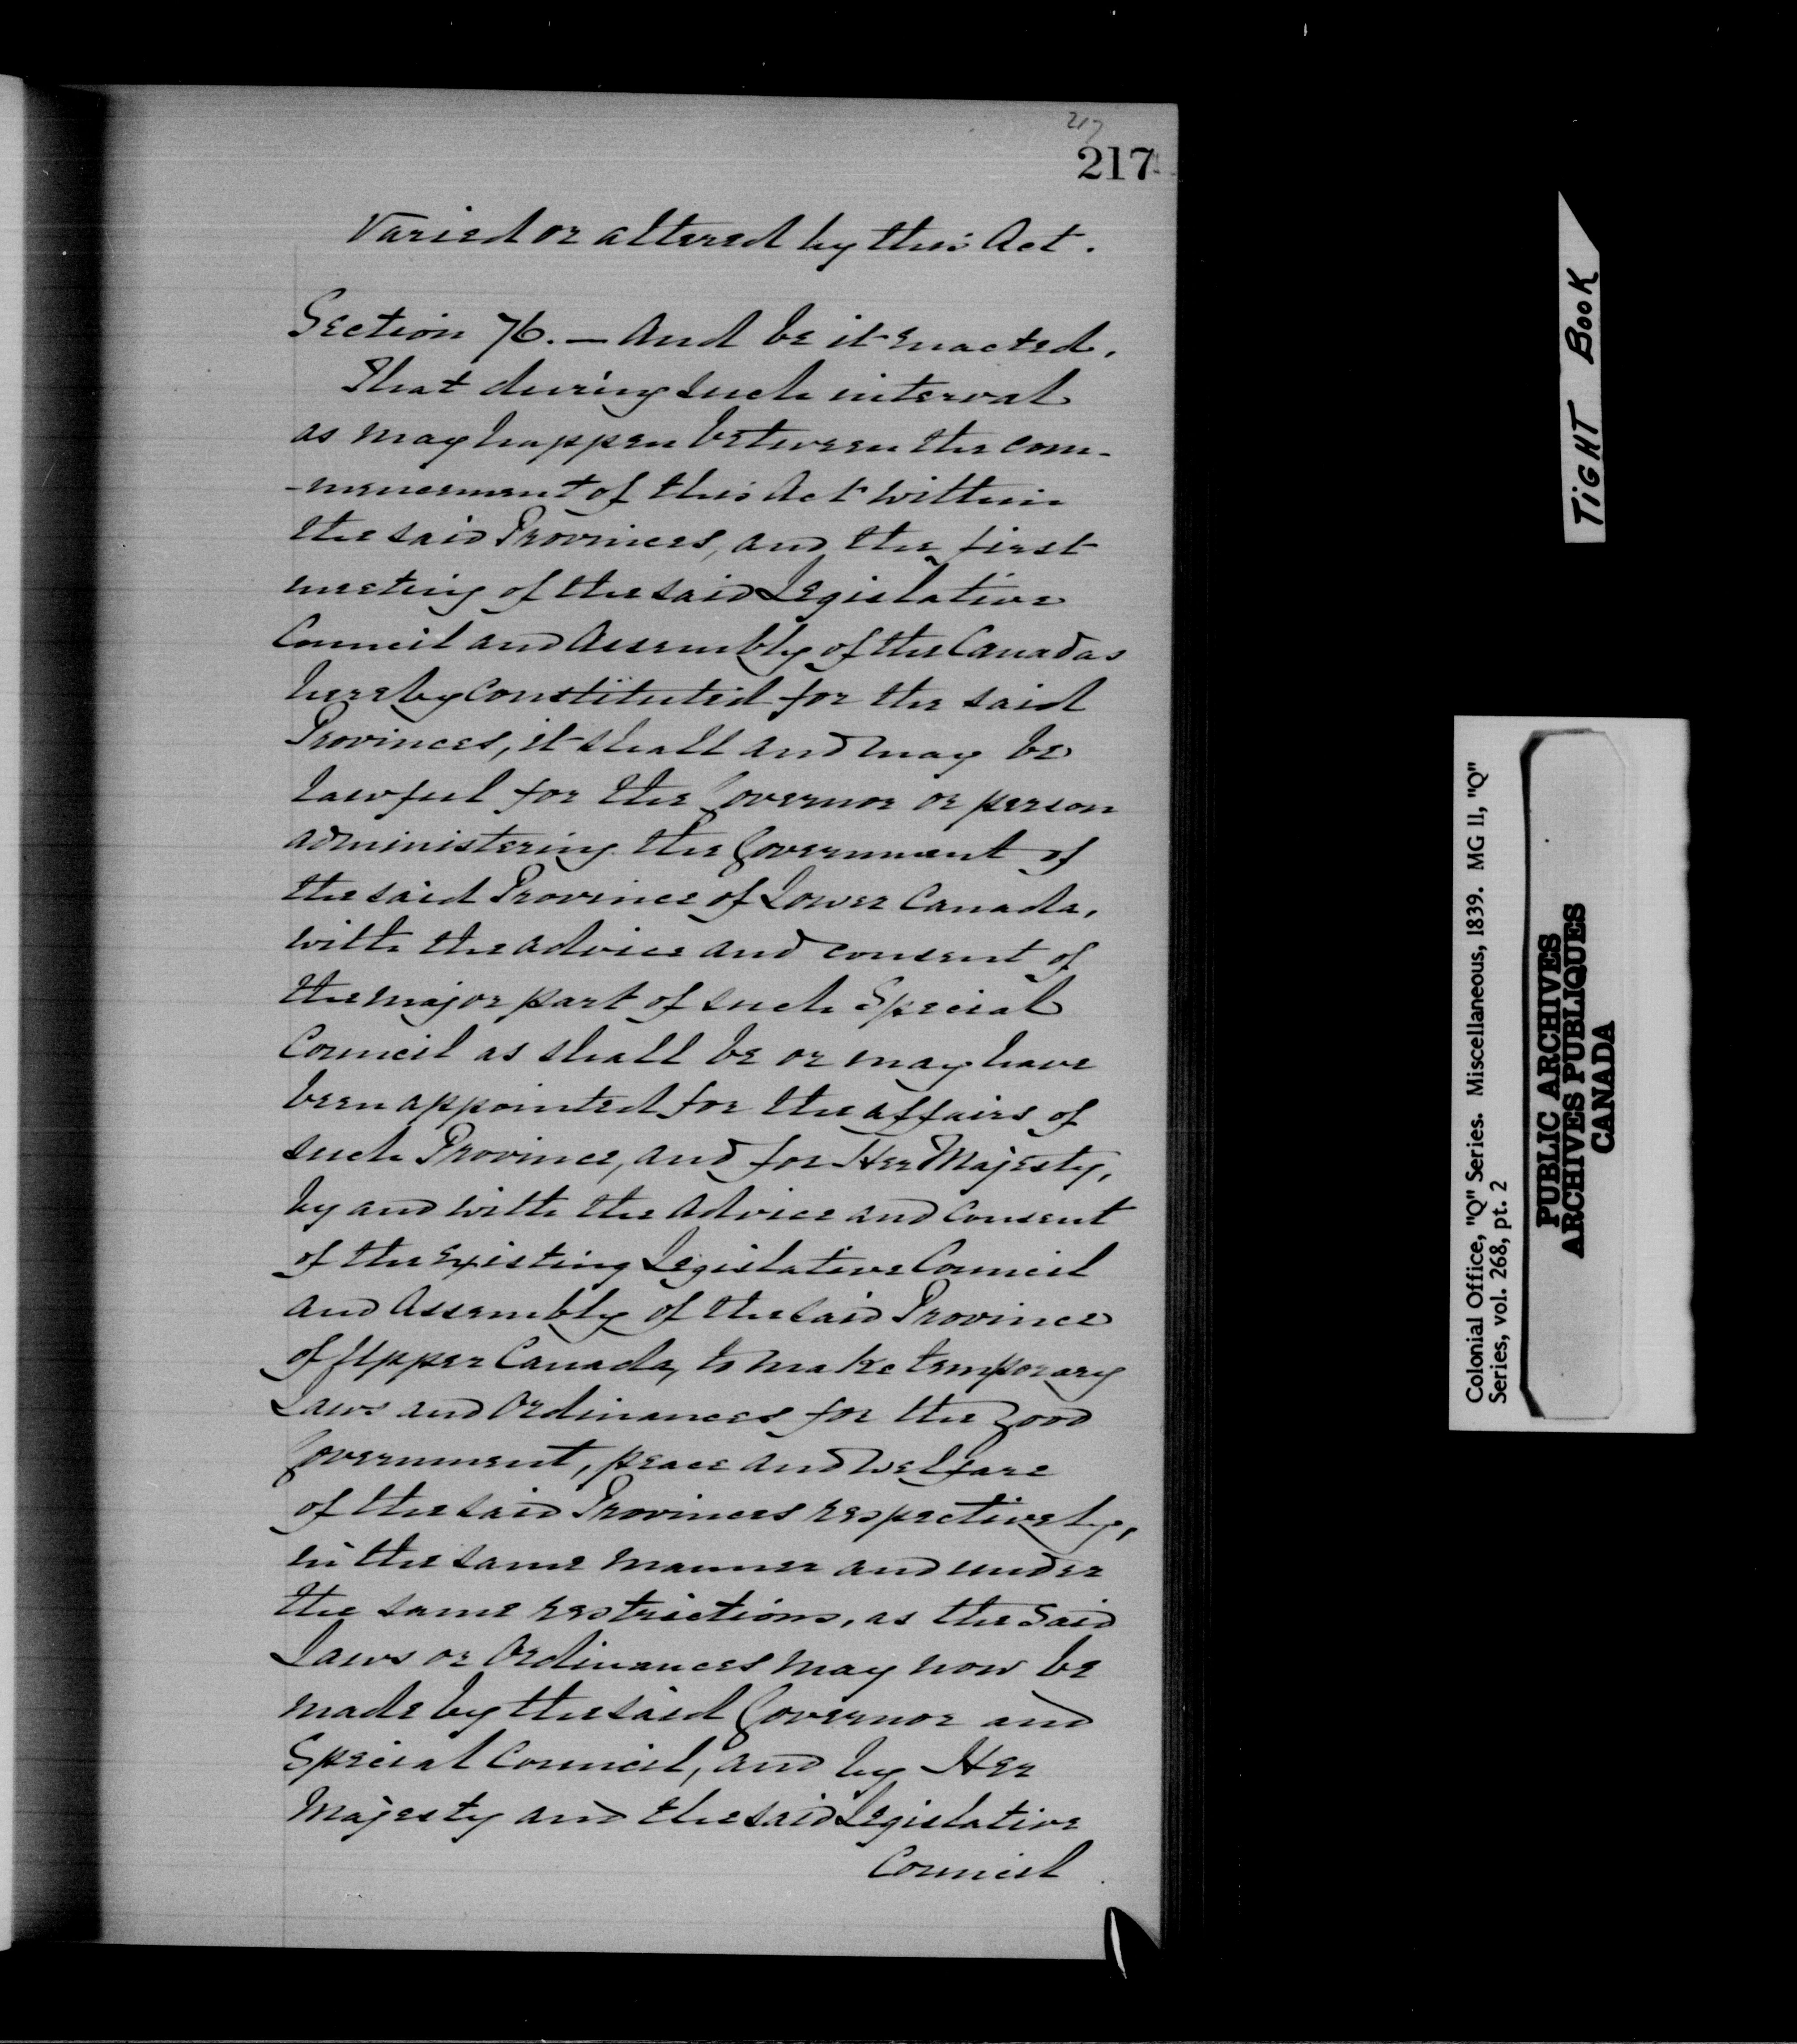 217
217
Varied or altered by this Act.
Section 76. — And be it enacted,
That during such interval
as may happen between the com-
-mencement of this Act within
the said Provinces, and the first
meeting of the said Legislative
Council and Assembly of the Canadas
hereby constituted for the said
Provinces, it shall and may be
lawful for the Governor or person
administering the Government of
the said Province of Lower Canada,
with the advice and consent of
the major part of such Special
Council as shall be or may have
been appointed for the affairs of
such Province, and for Her Majesty,
by and with the advice and consent
of the existing Legislative Council
and Assembly of the said Province
of Upper Canada, to make temporary
Laws and Ordinances for the good
Government, peace and welfare
of the said Provinces respectively,
in the same manner and under
the same restrictions, as the said
Laws or Ordinances may now be
made by the said Governor and
Special Council, and by Her
Majesty and the said Legislative
Council
TIGHT BOOK
Colonial Office, "Q" Series. Miscellaneous, 1839. MG 11, "Q"
Series, vol. 268, pt. 2
PUBLIC ARCHIVES
ARCHIVES PUBLIQUES
CANADA